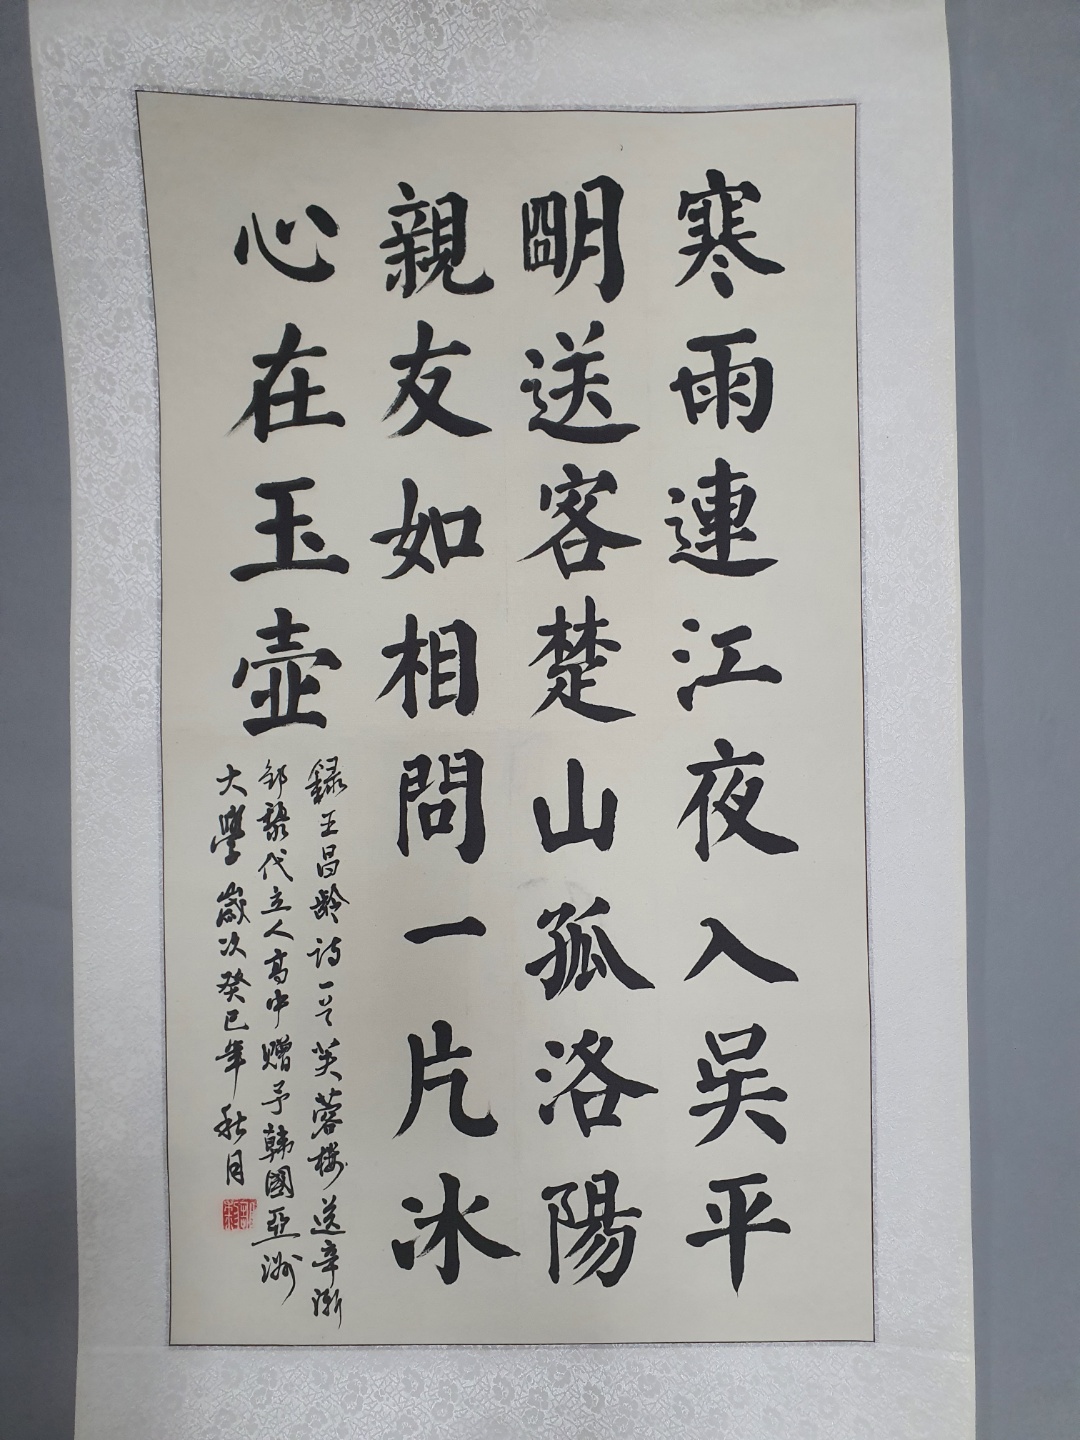 寒雨連江夜入吴平
朙送客楚山孤洛陽
親友如相問一片冰
心在玉壺
録王昌齡詩一首芙蓉樓送辛漸
代立人高中赠予韩國亞洲
大學歲次癸巳年秋月